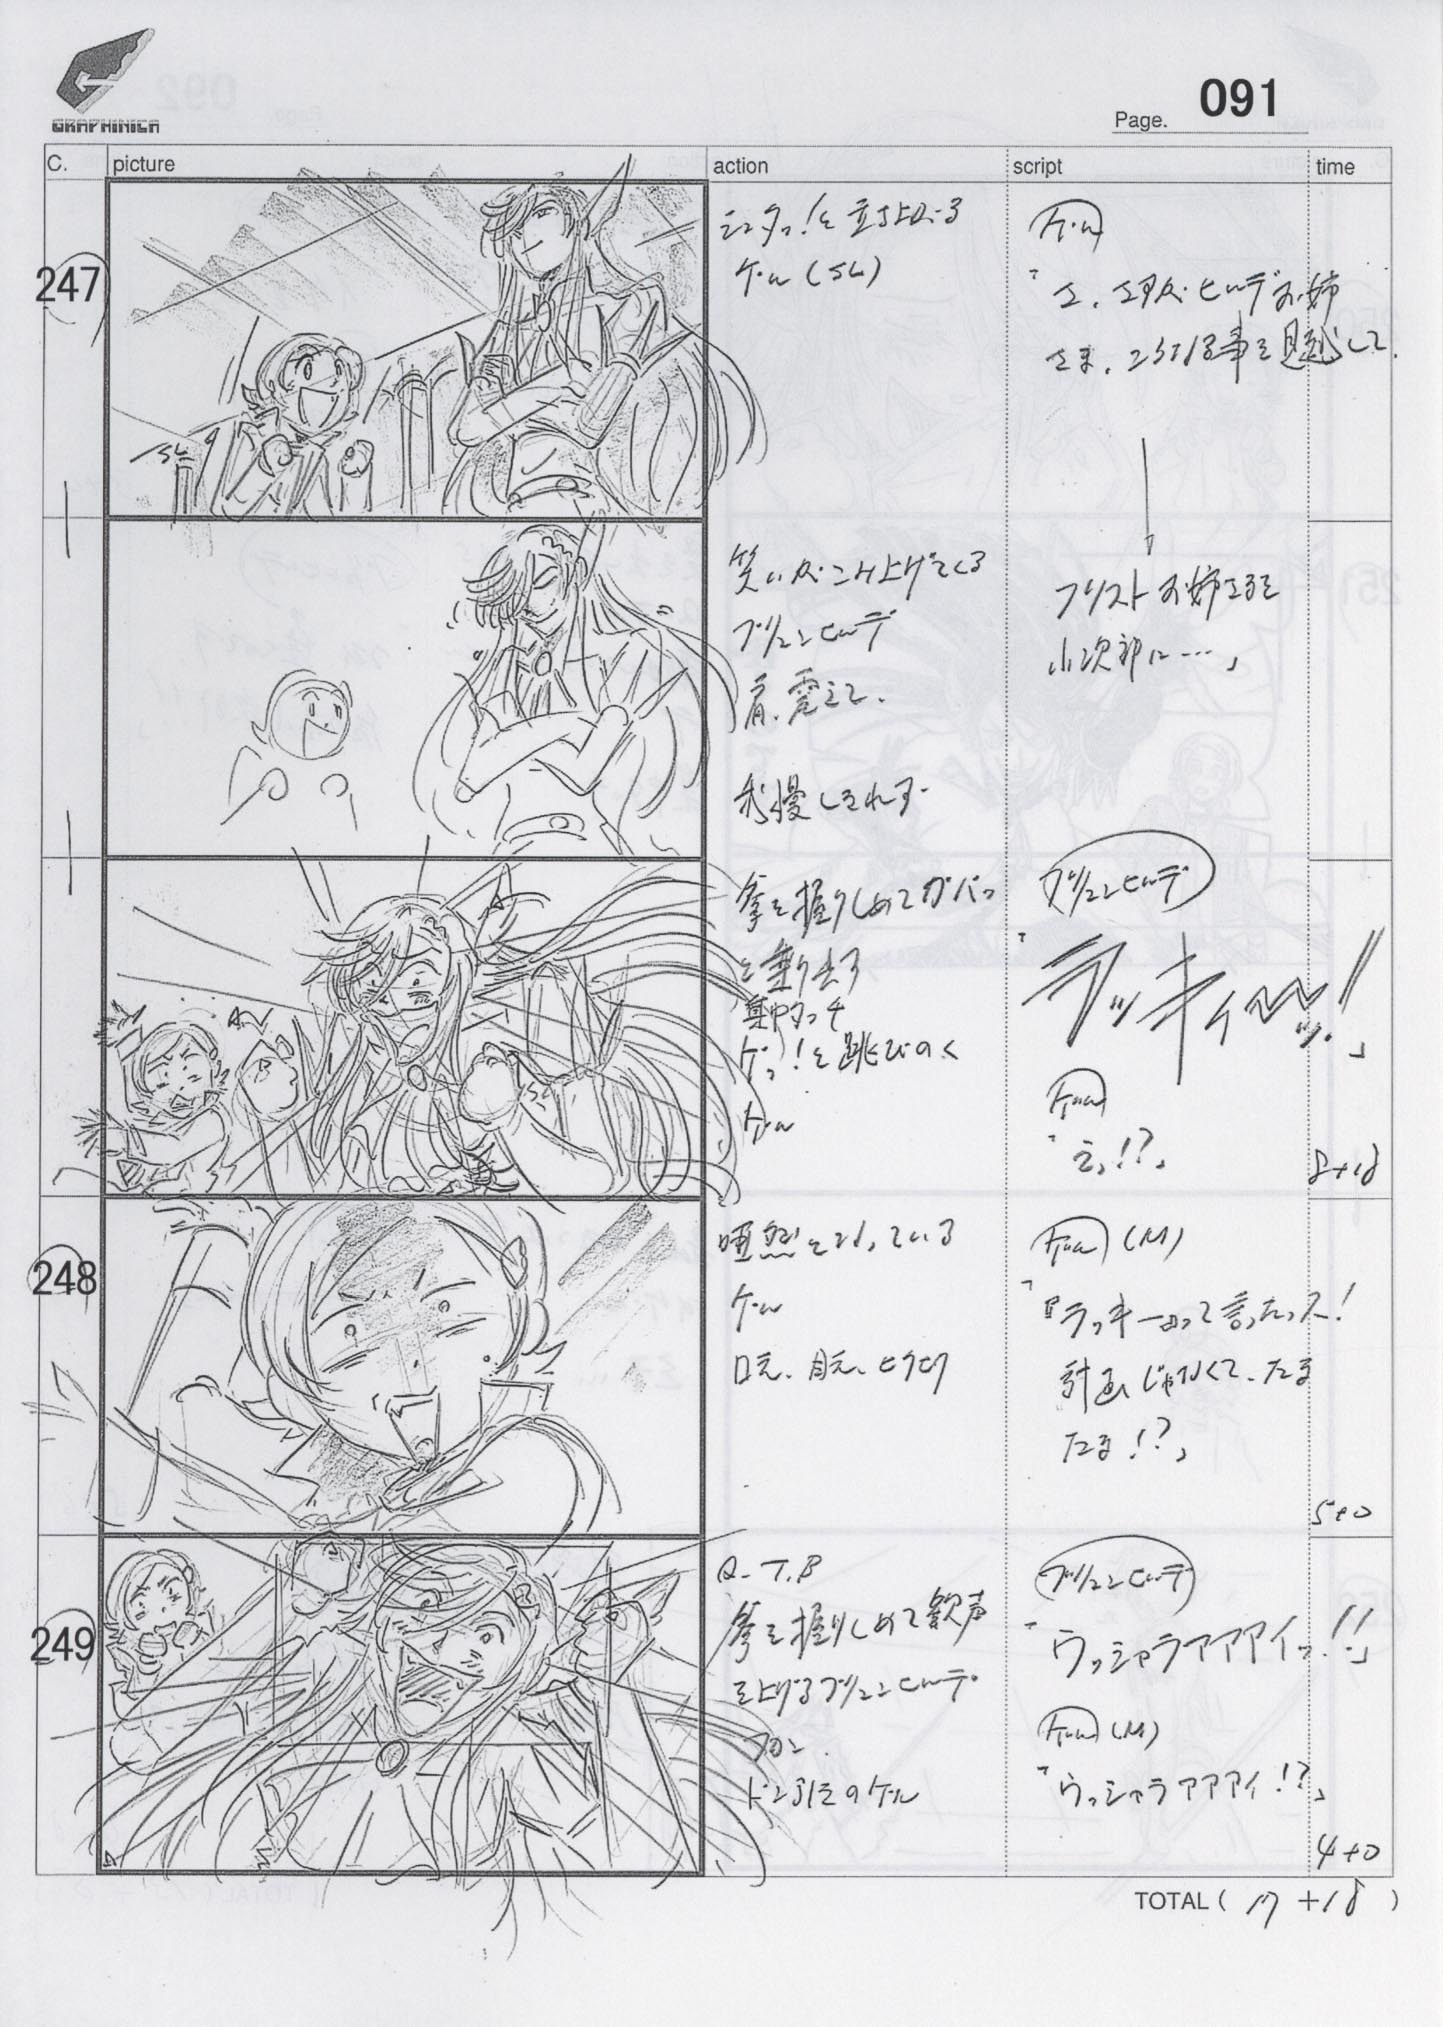 GRAPHINICA
Page. 091
C. picture action script time
247
シュタッ!と立ち上がる
ゲル(SL)
ゲル
「さ、さすがヒルデお姉
さま、こうなる事を見越して、
笑いがこみ上げてくる
ブリュンヒルデ
肩、震えて、
我慢しきれず
フリストお姉さまを
小次郎に…」
拳を握りしめてガバッ
と
集中タッチ
ゲッ!と跳びのく
ゲル
ブリュンヒルデ
「ラッキィ〜〜ッ!」
ゲル
「えっ!?」
8+18
248
唖然となっている
ゲル
口元、目元、ヒクヒク
ゲル(M)
「『ラッキーって言ったッ!
計画じゃなくて、たま
たま!?」
5+0
249
Q.T.B
拳を握りしめて歓声
を上げるブリュンヒルデ
ドン引きのゲル
ブリュンヒルデ
「ウッシャラアアアイッ!!」
ゲル(M)
「ウッシャラアアアイ!?」
4+0
TOTAL ( 17 +18 )